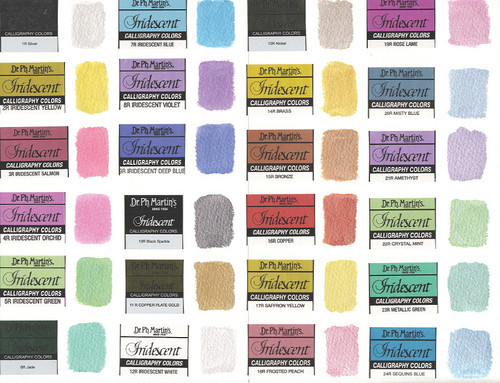 CALLIGRAPHY COLORS
1R Silver
Dr. Ph. Martin's
Iridescent
CALLIGRAPHY COLORS
2R IRIDESCENT YELLOW
Dr. Ph. Martin's
Iridescent
CALLIGRAPHY COLORS
3R IRIDESCENT SALMON
Dr. Ph. Martin's
Iridescent
CALLIGRAPHY COLORS
4R IRIDESCENT ORCHID
Dr. Ph. Martin's
Iridescent
CALLIGRAPHY COLORS
5R IRIDESCENT GREEN
CALLIGRAPHY COLORS
6R Jade
Iridescent
CALLIGRAPHY COLORS
7R IRIDESCENT BLUE
Dr. Ph. Martin's
Iridescent
CALLIGRAPHY COLORS
8R IRIDESCENT VIOLET
Dr. Ph. Martin's
Iridescent
CALLIGRAPHY COLORS
9R IRIDESCENT DEEP BLUE
Dr. Ph. Martin's
SINCE 1934
Iridescent
CALLIGRAPHY COLORS
10R Black Sparkle
Iridescent
CALLIGRAPHY COLORS
11R COPPER PLATE GOLD
Dr. Ph. Martin's
Iridescent
CALLIGRAPHY COLORS
12R IRIDESCENT WHITE
CALLIGRAPHY COLORS
13R Nickel
Dr. Ph. Martin's
Iridescent
CALLIGRAPHY COLORS
14R BRASS
Dr. Ph. Martin's
Iridescent
CALLIGRAPHY COLORS
15R BRONZE
Dr. Ph. Martin's
Iridescent
CALLIGRAPHY COLORS
16R COPPER
Dr. Ph. Martin's
Iridescent
CALLIGRAPHY COLORS
17R SAFFRON YELLOW
Dr. Ph. Martin's
Iridescent
CALLIGRAPHY COLORS
18R FROSTED PEACH
Iridescent
CALLIGRAPHY COLORS
19R ROSE LAME
Dr. Ph. Martin's
Iridescent
CALLIGRAPHY COLORS
20R MISTY BLUE
Dr. Ph. Martin's
Iridescent
CALLIGRAPHY COLORS
21R AMETHYST
Dr. Ph. Martin's
Iridescent
CALLIGRAPHY COLORS
22R CRYSTAL MINT
Dr. Ph. Martin's
Iridescent
CALLIGRAPHY COLORS
23R METALLIC GREEN
Dr. Ph. Martin's
Iridescent
CALLIGRAPHY COLORS
24R SEQUINS BLUE